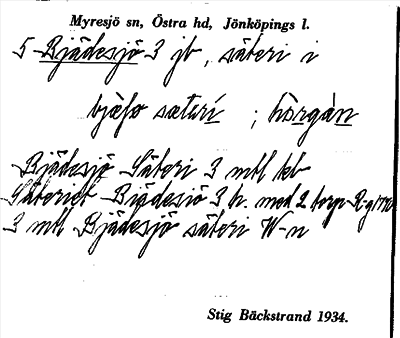 Myresjö sn, Östra hd, Jönköpings l.
5 Bjädesjö 3 jb, säteri i
bjæsə sæterí ; hörgàn
Bjädesjö Säteri 3 mtl kb
Säteriet Bjädesjö 3 h. med 2 torp
3 mtl Bjädesjö säteri W-n
Stig Bäckstrand 1934.